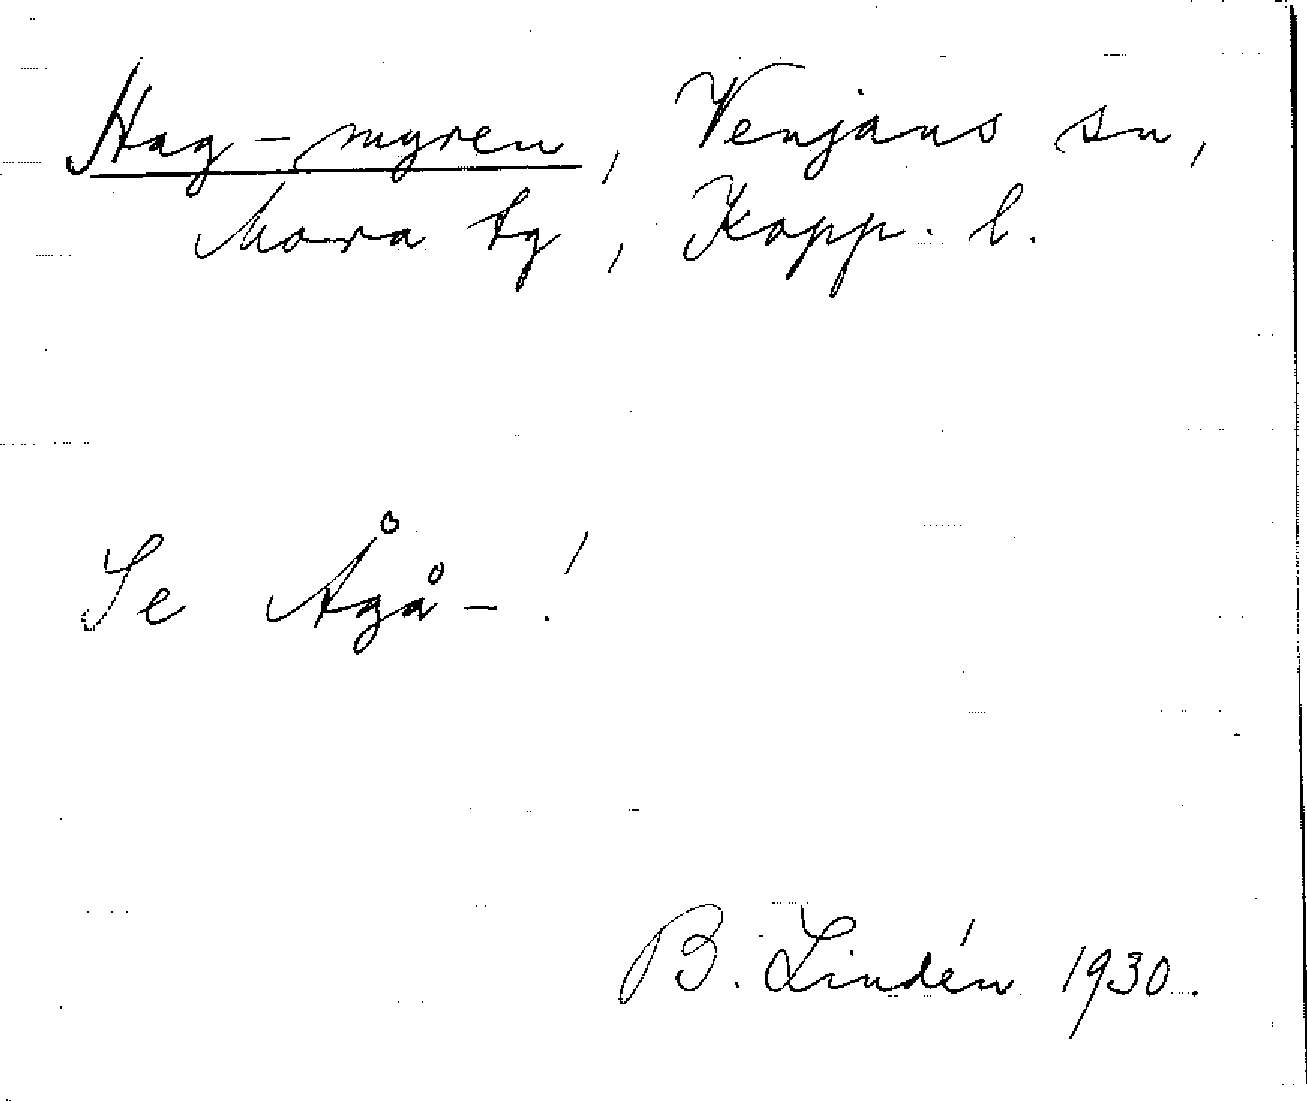 Hag-myren, Venjans sn,
Mora tg, Kopp. l.
Se Ågå-!
B. Lindén 1930.